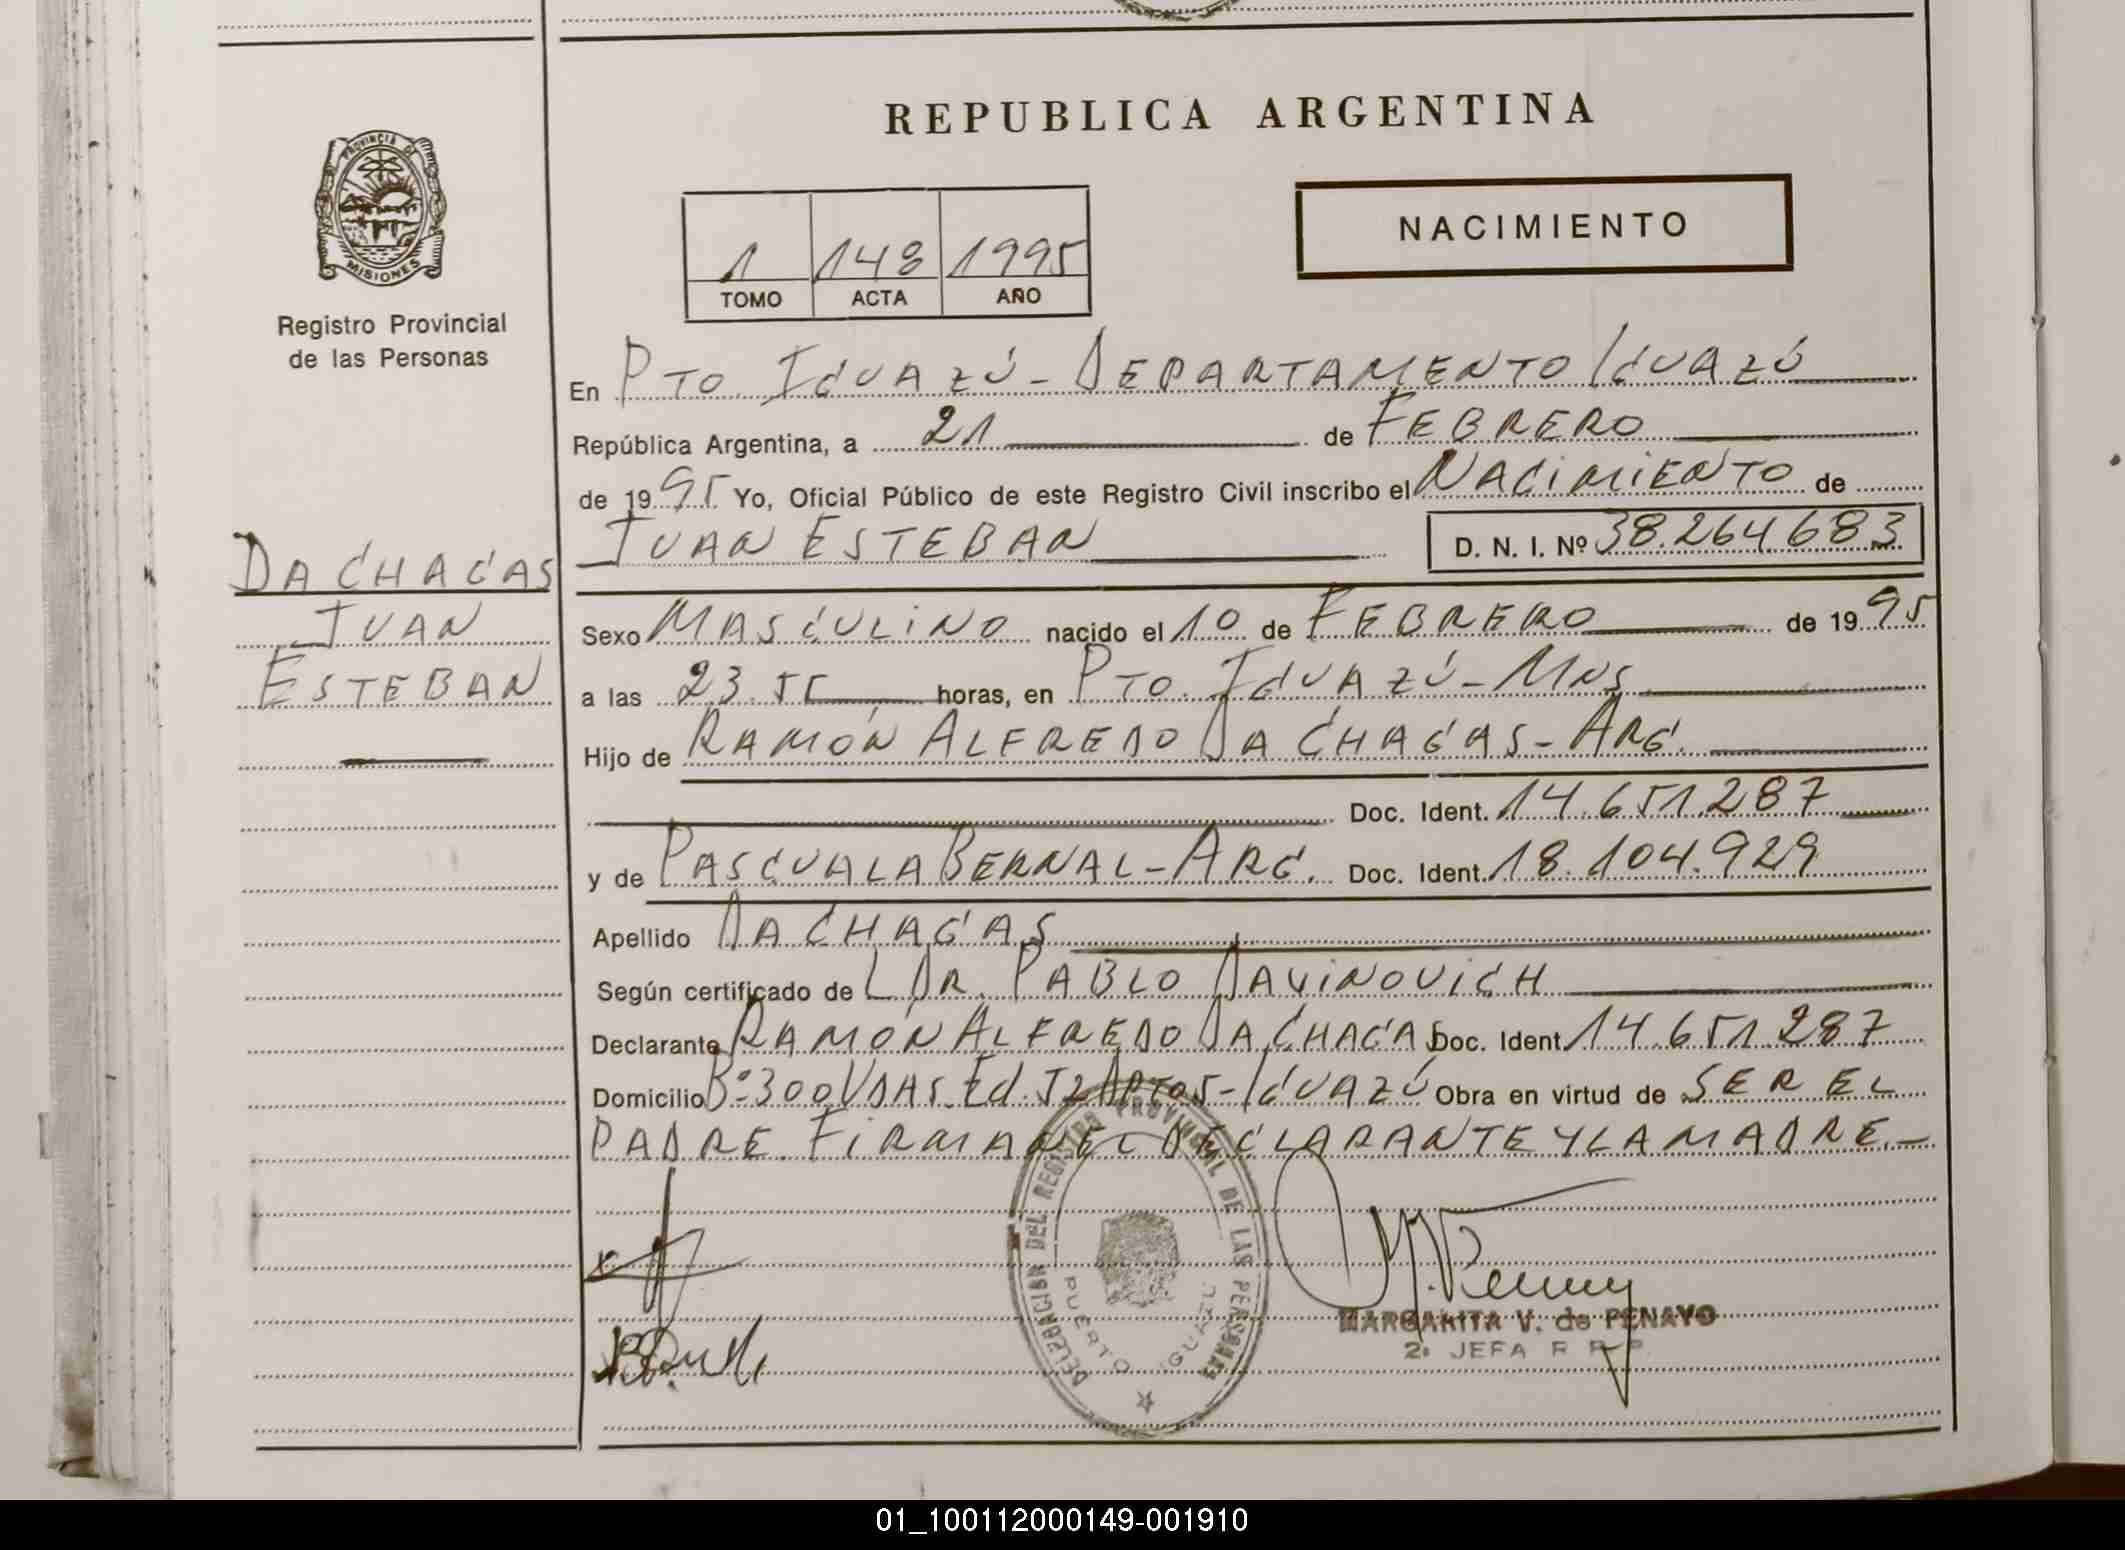 REPUBLICA ARGENTINA
PROVINCIA DE
MISIONES
Registro Provincial
de las Personas
NACIMIENTO
1 148 1995
TOMO ACTA AÑO
En PTO. IGUAZÚ - DEPARTAMENTO IGUAZÚ
República Argentina, a 21 de FEBRERO
de 1995 Yo, Oficial Público de este Registro Civil inscribo el NACIMIENTO de
JUAN ESTEBAN D. N. I. Nº 38.264.683
DA CHAGAS
JUAN
ESTEBAN
Sexo MASCULINO nacido el 10 de FEBRERO de 1995
a las 23.55 horas, en PTO. IGUAZÚ - MNS
Hijo de RAMÓN ALFREDO DA CHAGAS - ARG.
Doc. Ident. 14.651.287
y de PASCUALA BERNAL - ARG. Doc. Ident. 18.104.929
Apellido DA CHAGAS
Según certificado de L DR. PABLO DAVINOVICH
Declarante RAMÓN ALFREDO DA CHAGAS Doc. Ident. 14.651.287
Domicilio Bº 300 VDAS. Ed. 52 DPTO 5 - IGUAZÚ Obra en virtud de SER EL
PADRE. FIRMAN EL DECLARANTE Y LA MADRE.-
DELEGACION DEL REGISTRO PROVINCIAL DE LAS PERSONAS
PUERTO IGUAZU
MARGARITA V. de PENAYO
2ª JEFA R P P
01_100112000149-001910